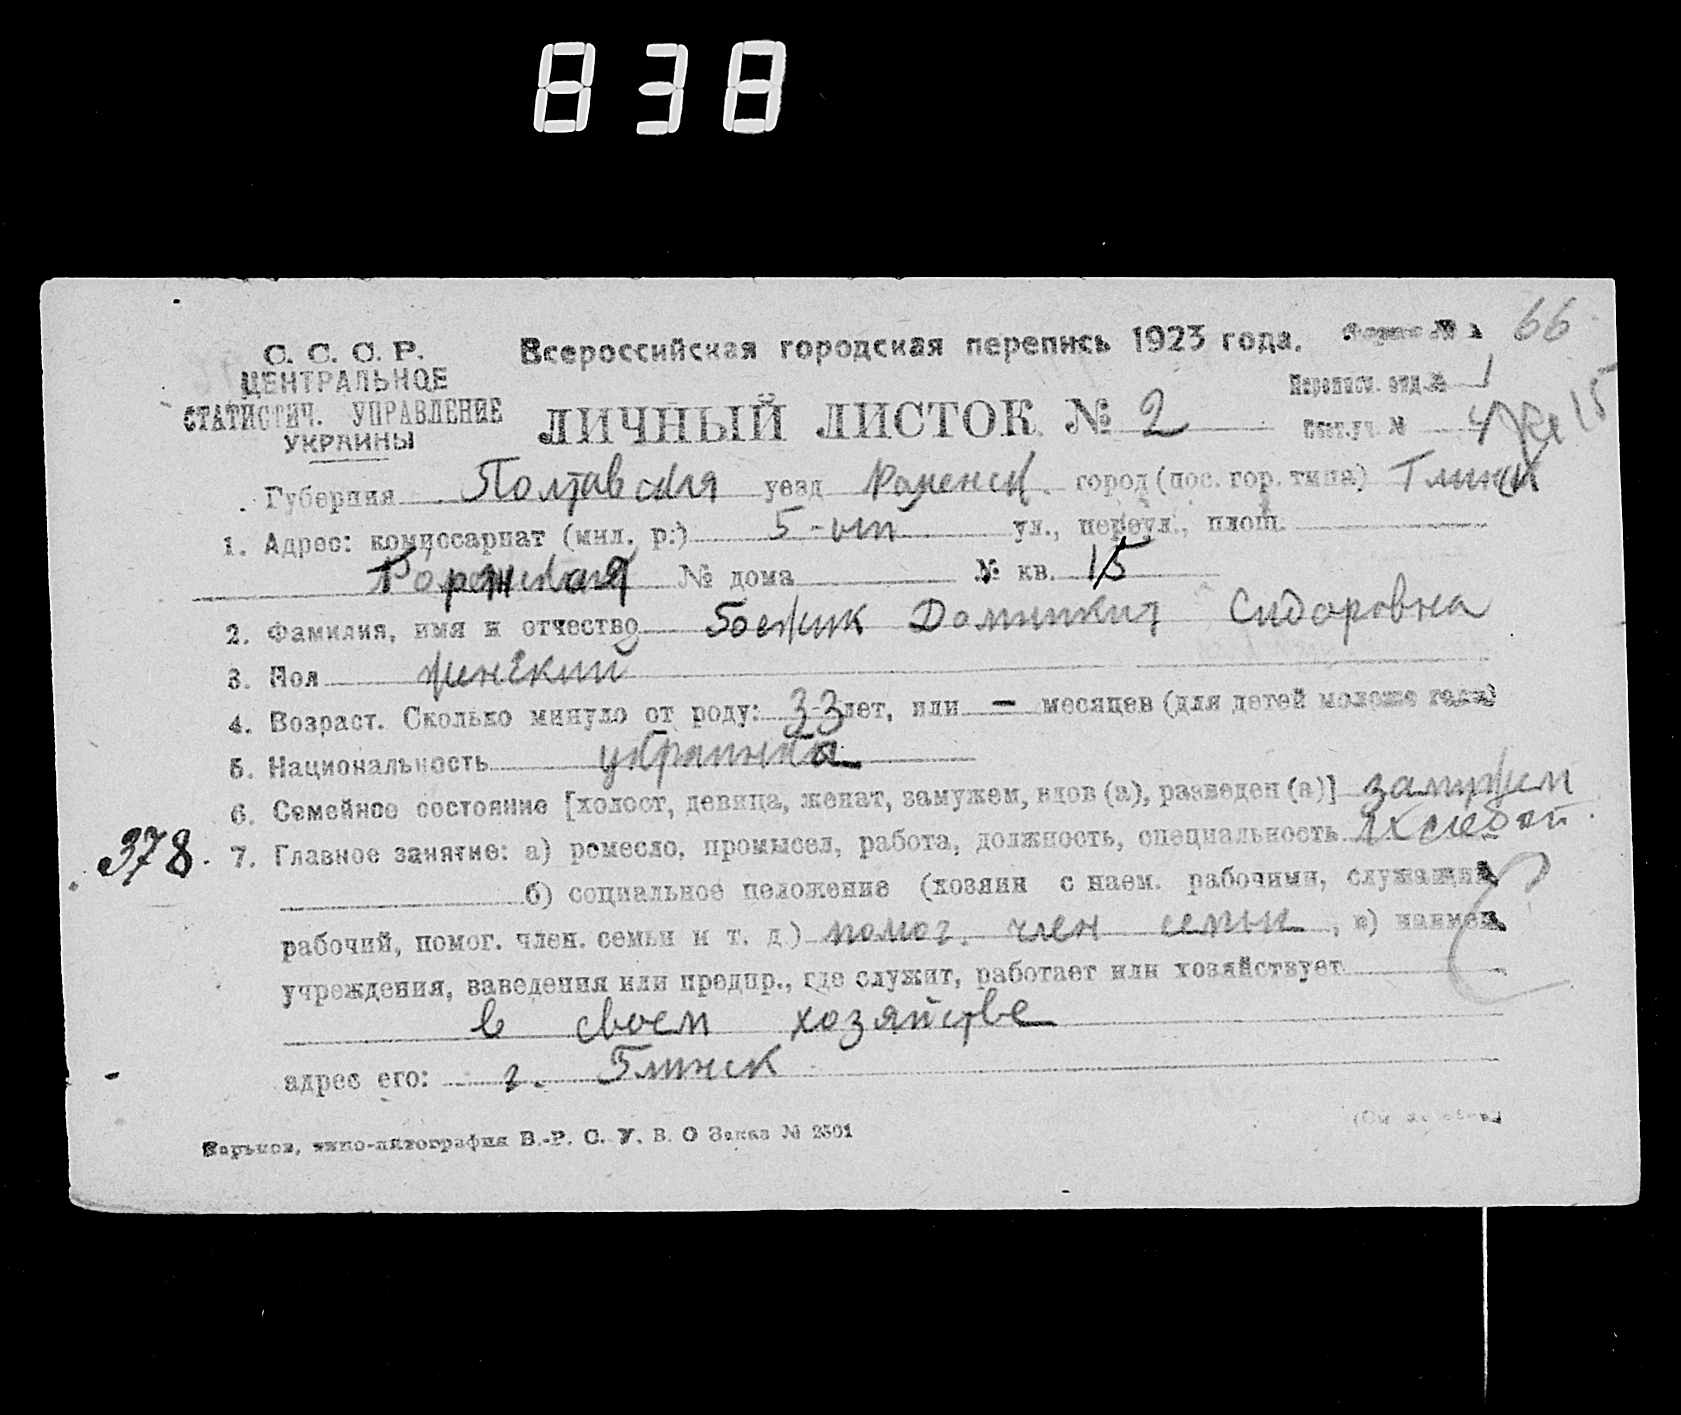 838
С. С. С. Р.
ЦЕНТРАЛЬНОЕ
СТАТИСТИЧ. УПРАВЛЕНИЕ
УКРАИНЫ
Всероссийская городская перепись 1923 года.
Форма № 1
66
Переписн. отд. № 1
ЛИЧНЫЙ ЛИСТОК № 2
№ 4
15
Губерния Полтавская уезд Роменск. город (пос. гор. типа) Глинск
1. Адрес: комиссариат (мил. р.) 5-ый ул., переул., площ.
№ дома № кв. 15
2. Фамилия, имя и отчество Сидоровна
3. Пол женский
4. Возраст. Сколько минуло от роду: 33 лет, или — месяцев (для детей моложе года)
5. Национальность украинка
6. Семейное состояние [холост, девица, женат, замужем, вдов (а), разведен (а)] замужем
378. 7. Главное занятие: а) ремесло, промысел, работа, должность, специальность
б) социальное положение (хозяин с наем. рабочими, служащий,
рабочий, помог. член. семьи и т. д.) помог. член семьи, в) наимен.
учреждения, заведения или предпр., где служит, работает или хозяйствует
в своем хозяйстве
адрес его: г. Глинск
Харьков, типо-литография В.-Р. С. У. В. О Заказ № 2301